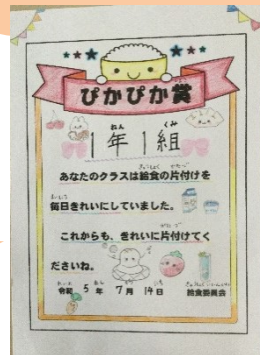 ぴかぴか賞
1年1組
あなたのクラスは給食の片付けを
毎日きれいにしていました。
これからも、きれいに片付けてく
ださいね。
令和5年7月14日 給食委員会